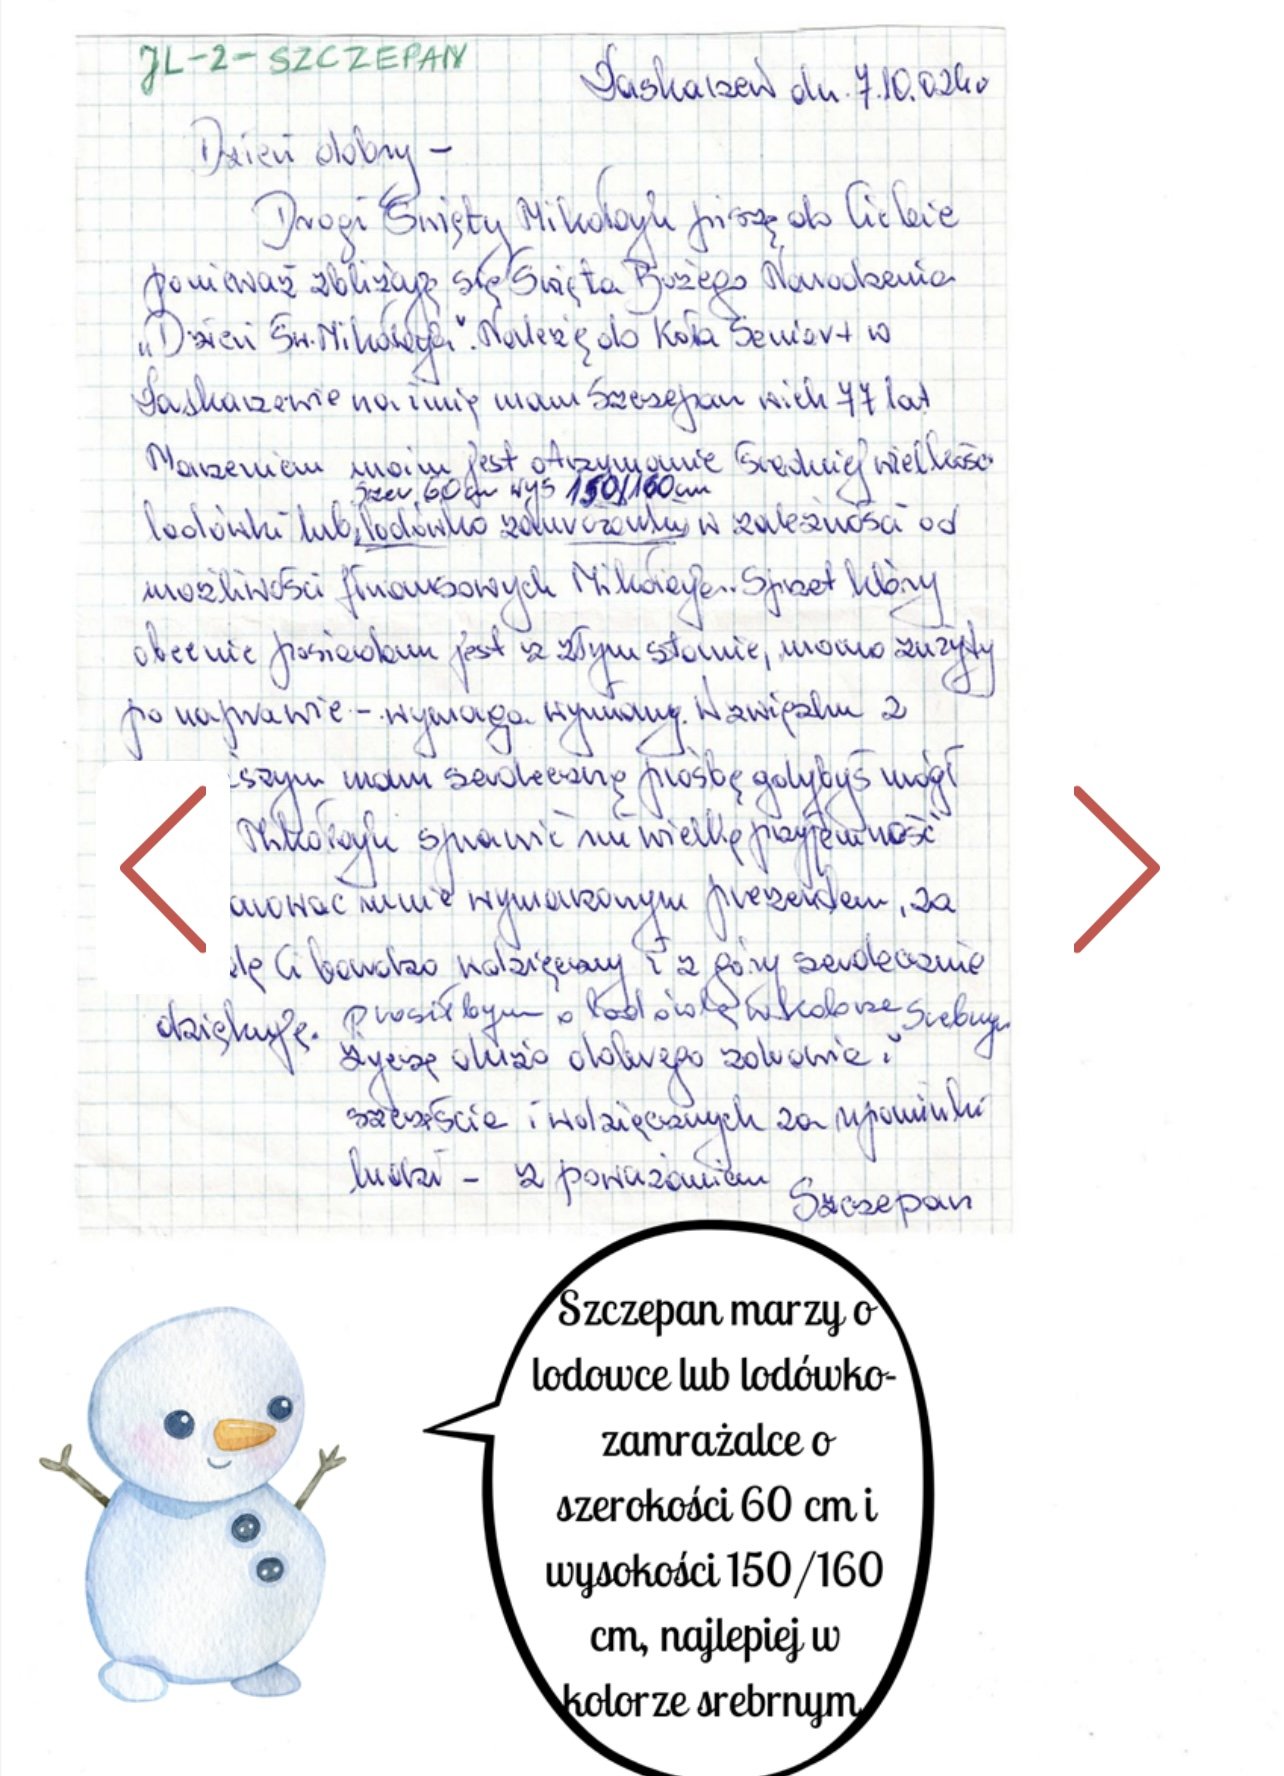 JL-2-SZCZEPAN
Łaskarzew dn. 7.10.024r
Dzień dobry -
Drogi Święty Mikołaju piszę do Ciebie
ponieważ zbliżają się Święta Bożego Narodzenia
„Dzień Św. Mikołaja". Należę do Koła Senior+ w
Łaskarzewie na imię mam Szczepan wiek 77 lat
Marzeniem moim jest otrzymanie średniej wielkości
szer. 60cm wys 150/160cm
lodówki lub lodówko zamrażarki w zależności od
możliwości finansowych Mikołaja. Sprzęt który
obecnie posiadam jest w złym stanie, mocno zużyty
po naprawie - wymaga wymiany. W związku z
szym mam serdeczną prośbę gdybyś mógł
Mikołaju sprawić mi wielką przyjemność
arować mnie wymarzonym prezentem, za
dę Ci bardzo wdzięczny i z góry serdecznie
dziękuję. Prosiłbym o lodówkę w kolorze srebrnym
Życzę dużo dobrego zdrowia i
szczęścia i wdzięcznych za upominki
ludzi - z poważaniem
Szczepan
Szczepan marzy o
lodowce lub lodówko-
zamrażalce o
szerokości 60 cm i
wysokości 150/160
cm, najlepiej w
kolorze srebrnym